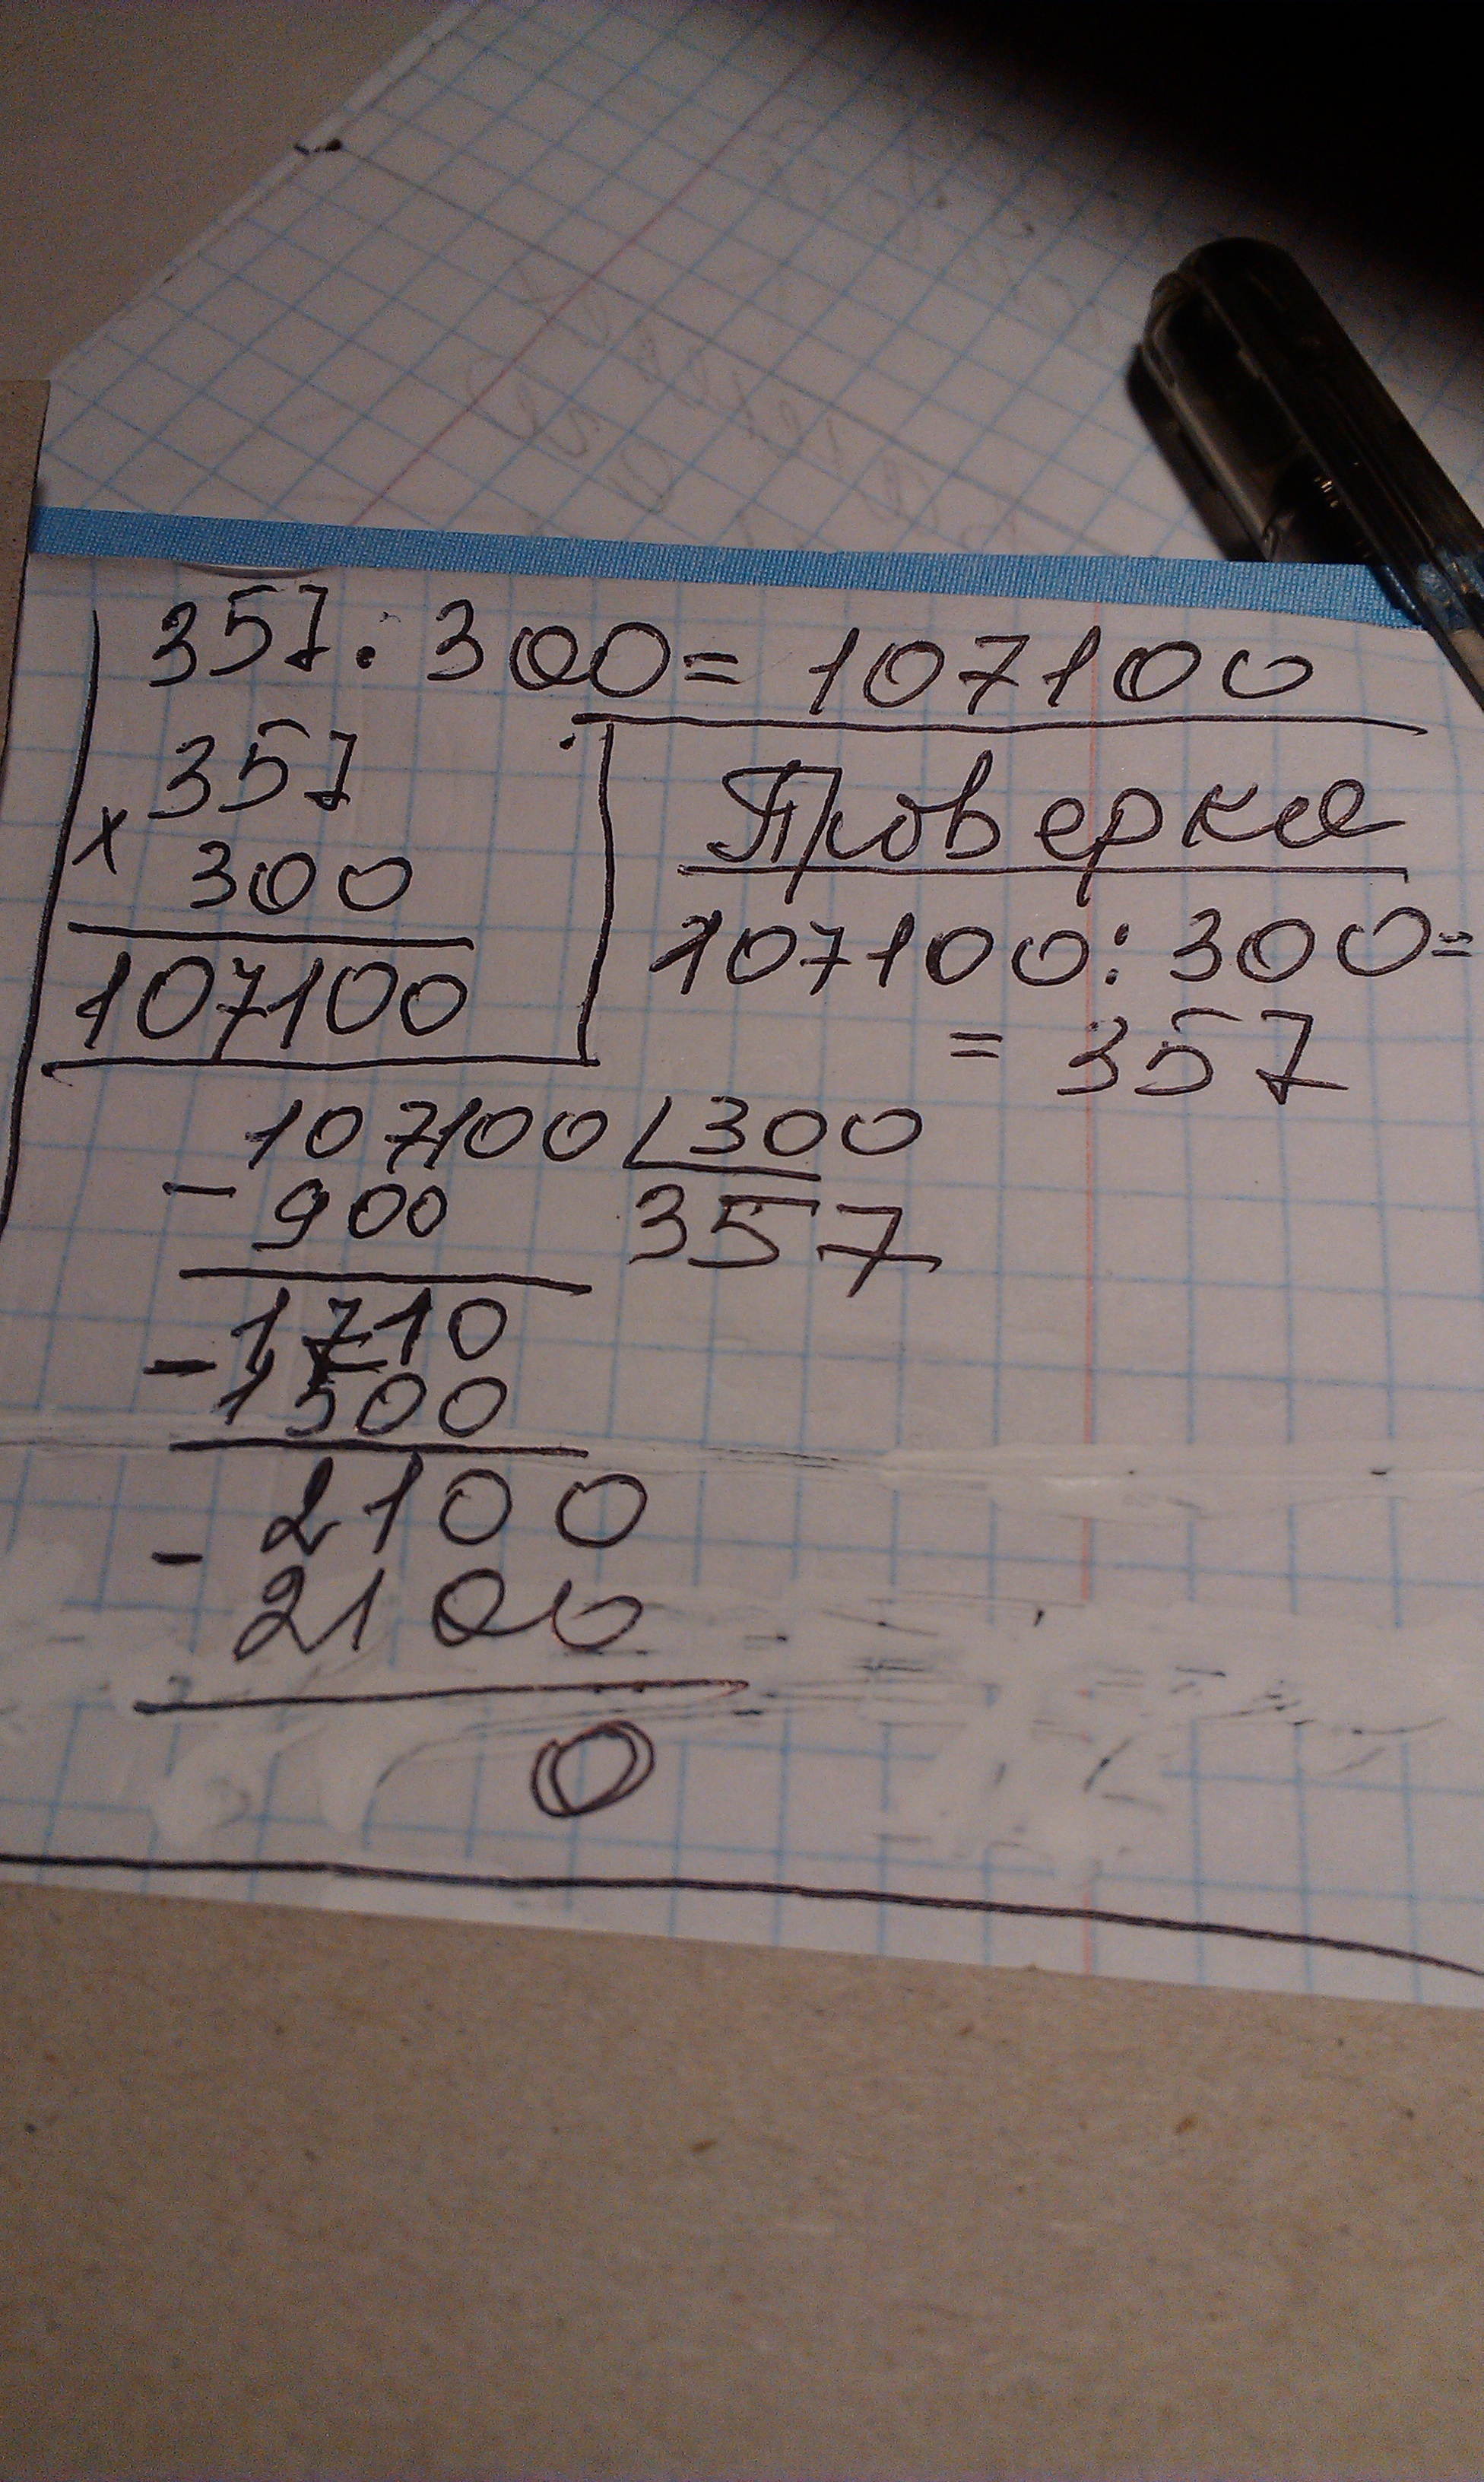 357 · 300 = 107100
357
× 300
107100
Проверка
107100 : 300 =
= 357
107100 300
- 900 357
1710
- 1500
2100
- 2100
0